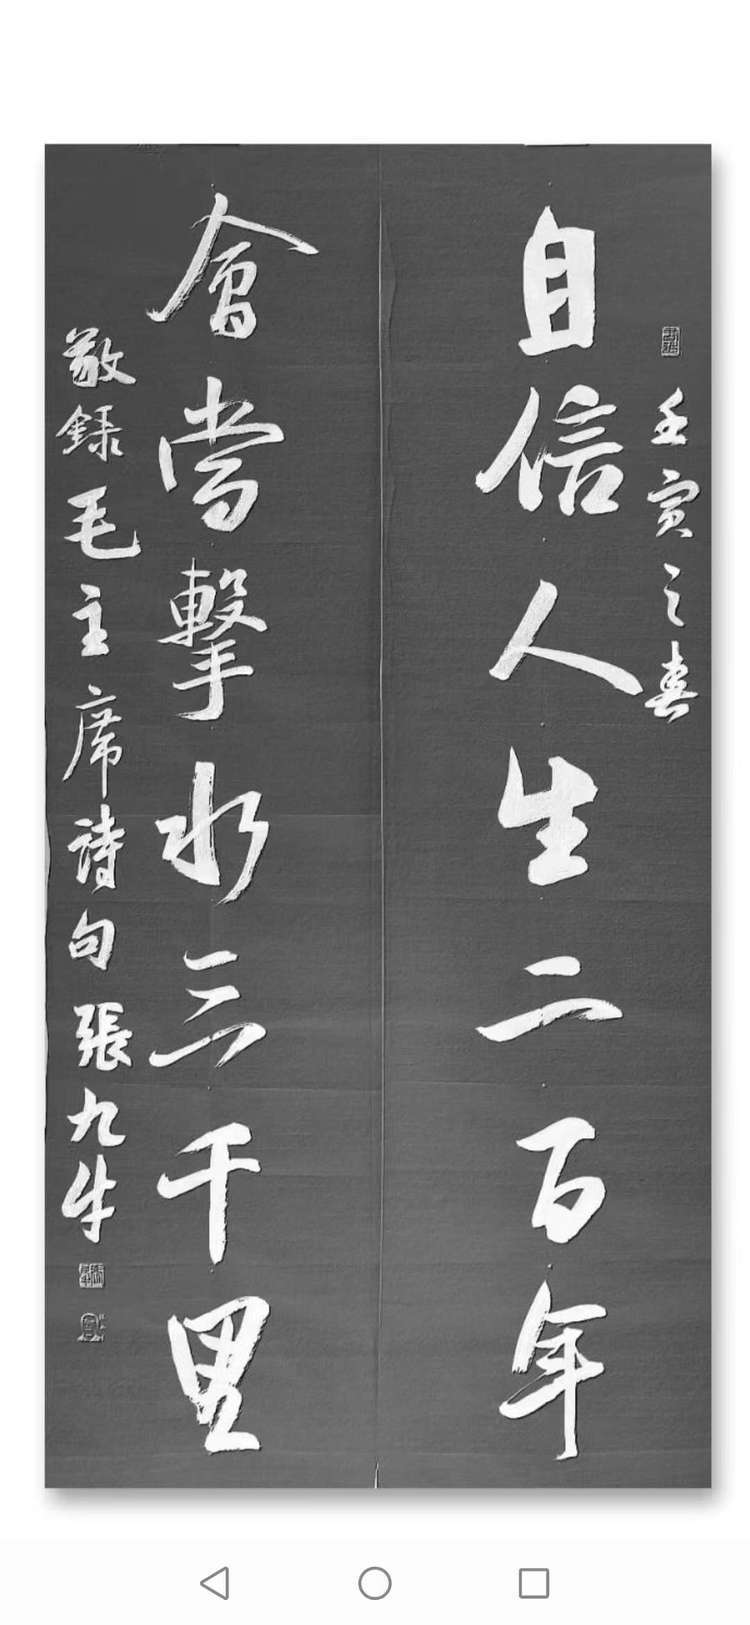 壬寅之春
自信人生二百年
會當擊水三千里
敬録毛主席詩句張九牛